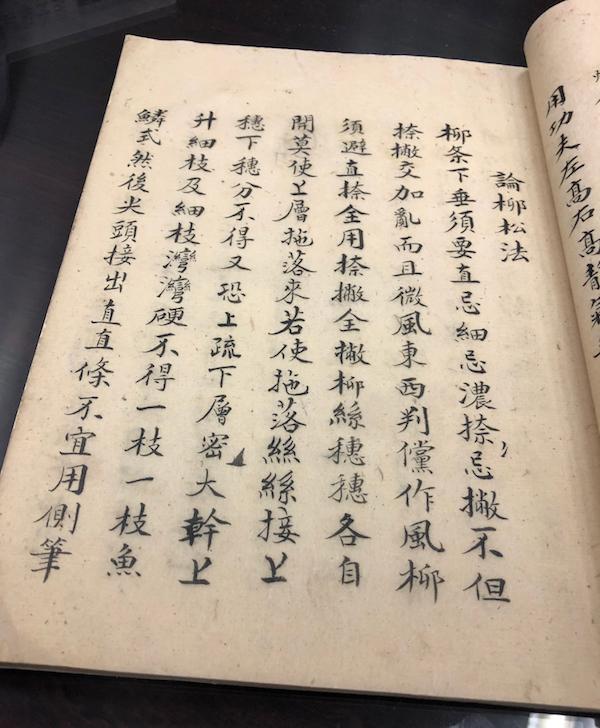 用功夫左髙右髙靜氣
論柳松法
柳条下垂須要直忌細忌濃捺忌撇不但
捺撇交加亂而且微風東西判儻作風柳
須避直捺全用捺撇全撇柳絲穗穗各自
開莫使上層拖落來若使拖落絲絲接上
穗下穗分不得又恐上疏下層密大幹上
升細枝及細枝灣灣硬不得一枝一枝魚
鱗式然後尖頭接出直直條不宜用側筆